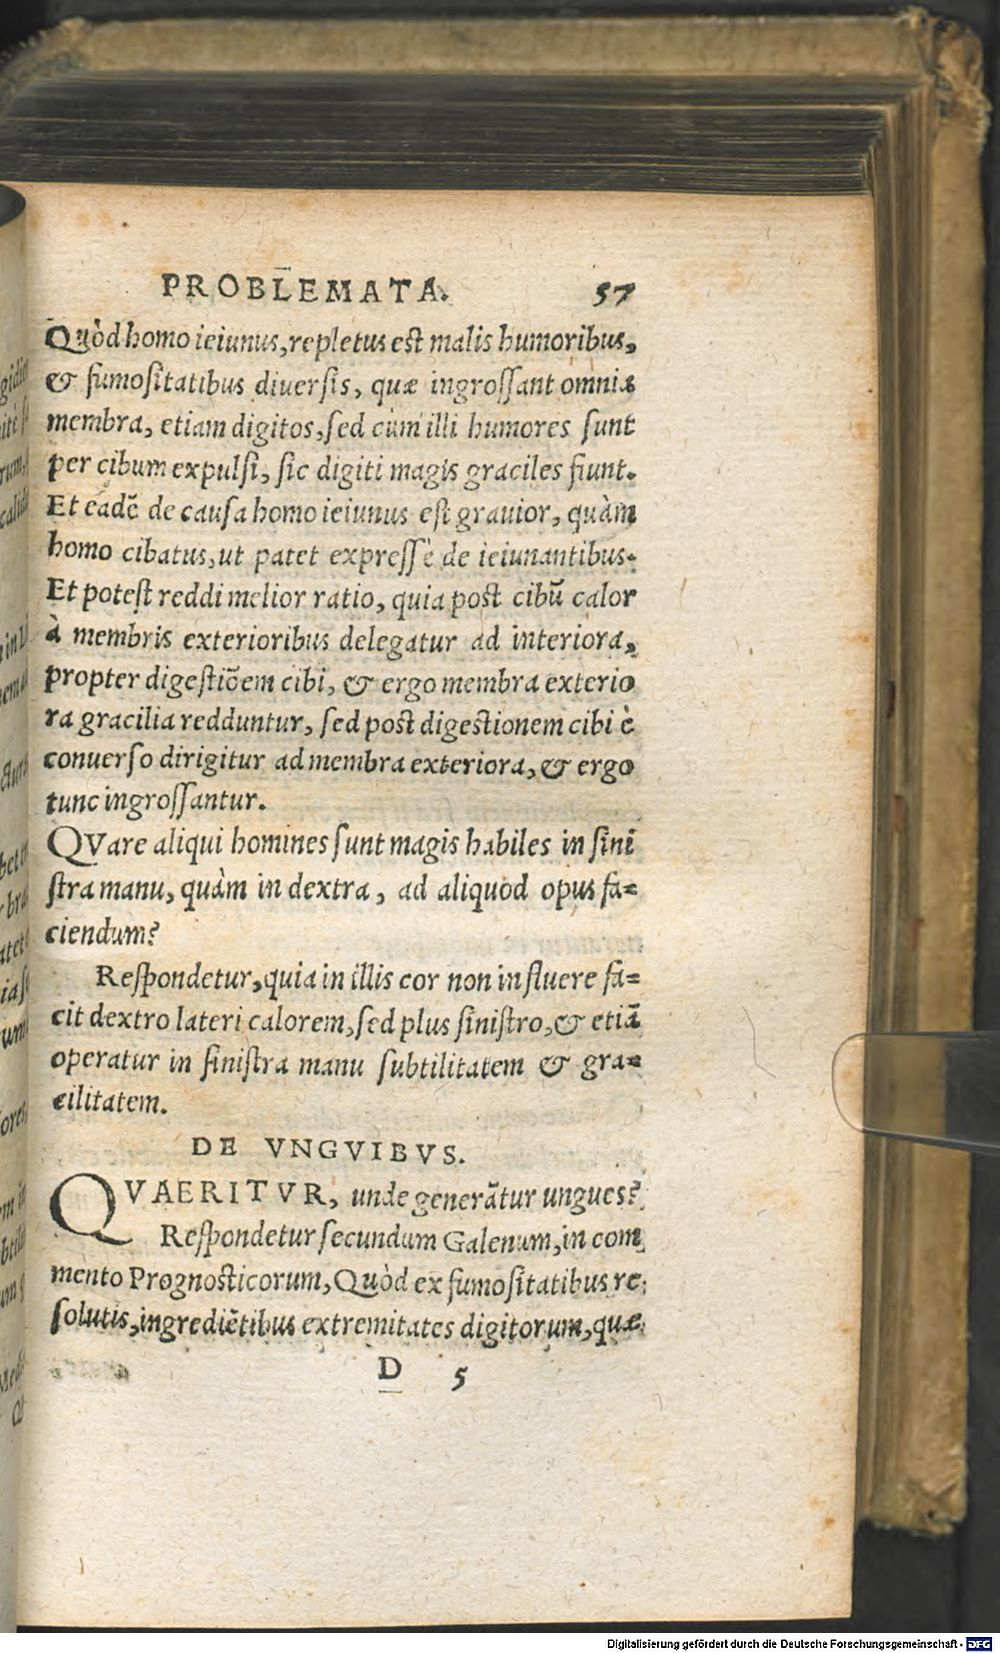 PROBLEMATA. 57
Quòd homo ieiunus, repletus est malis humoribus,
& fumositatibus diuersis, quæ ingrossant omnia
membra, etiam digitos, sed cùm illi humores sunt
per cibum expulsi, sic digiti magis graciles fiunt.
Et eadē de causa homo ieiunus est grauior, quàm
homo cibatus, ut patet expressè de ieiunantibus.
Et potest reddi melior ratio, quia post cibū calor
à membris exterioribus delegatur ad interiora,
propter digestiōem cibi, & ergo membra exterio
ra gracilia redduntur, sed post digestionem cibi è
conuerso dirigitur ad membra exteriora, & ergo
tunc ingrossantur.
QVare aliqui homines sunt magis habiles in sini
stra manu, quàm in dextra, ad aliquod opus fa=
ciendum?
Respondetur, quia in illis cor non influere fa=
cit dextro lateri calorem, sed plus sinistro, & etiā
operatur in sinistra manu subtilitatem & gra=
cilitatem.
DE VNGVIBVS.
QVAERITVR, unde generātur ungues?
Respondetur secundum Galenum, in com
mento Prognosticorum, Quòd ex fumositatibus re
solutis, ingrediētibus extremitates digitorum, quæ
D 5
Digitalisierung gefördert durch die Deutsche Forschungsgemeinschaft - DFG